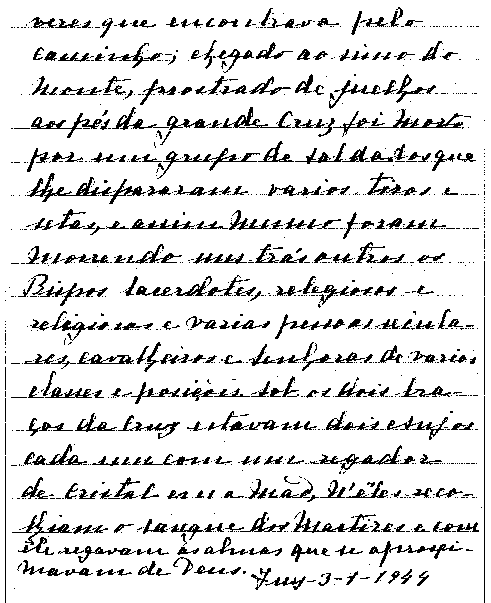 veres que encontrava pelo
caminho; chegado ao simo do
monte, prostrado de juelhos
aos pés da grande Cruz foi morto
por um grupo de soldados que
lhe dispararam varios tiros e
setas, e assim mesmo foram
morrendo uns trás outros os
Bispos Sacerdotes, religiosos e
religiosas e varias pessoas secula-
res, cavalheiros e senhoras de varias
classes e posições. Sob os dois bra-
ços da Cruz estavam dois Anjos
cada um com um regador
de cristal em a mão, N'êles reco-
lhiam o sangue dos Martires e com
êle regavam as almas que se aproxi-
mavam de Deus.
Tuy-3-1-1944